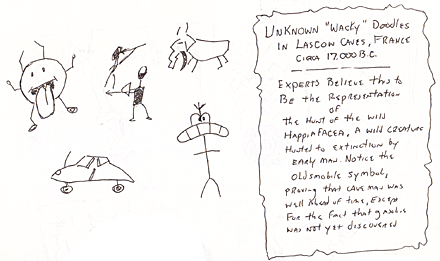 UNKNOWN "WACKY" DOODLES
IN LASCOW CAVES, FRANCE
CIRCA 17,000 B.C.
EXPERTS BELIEVE THIS TO
BE THE REPRESENTATION
OF
THE HUNT OF THE WILD
HAPPIAFACEA, A WILD CREATURE
HUNTED TO EXTINCTION BY
EARLY MAN. NOTICE THE
OLDSMOBILE SYMBOL,
PROVING THAT CAVE MAN WAS
WELL AHEAD OF TIME, EXCEPT
FOR THE FACT THAT GASOLINE
WAS NOT YET DISCOVERED